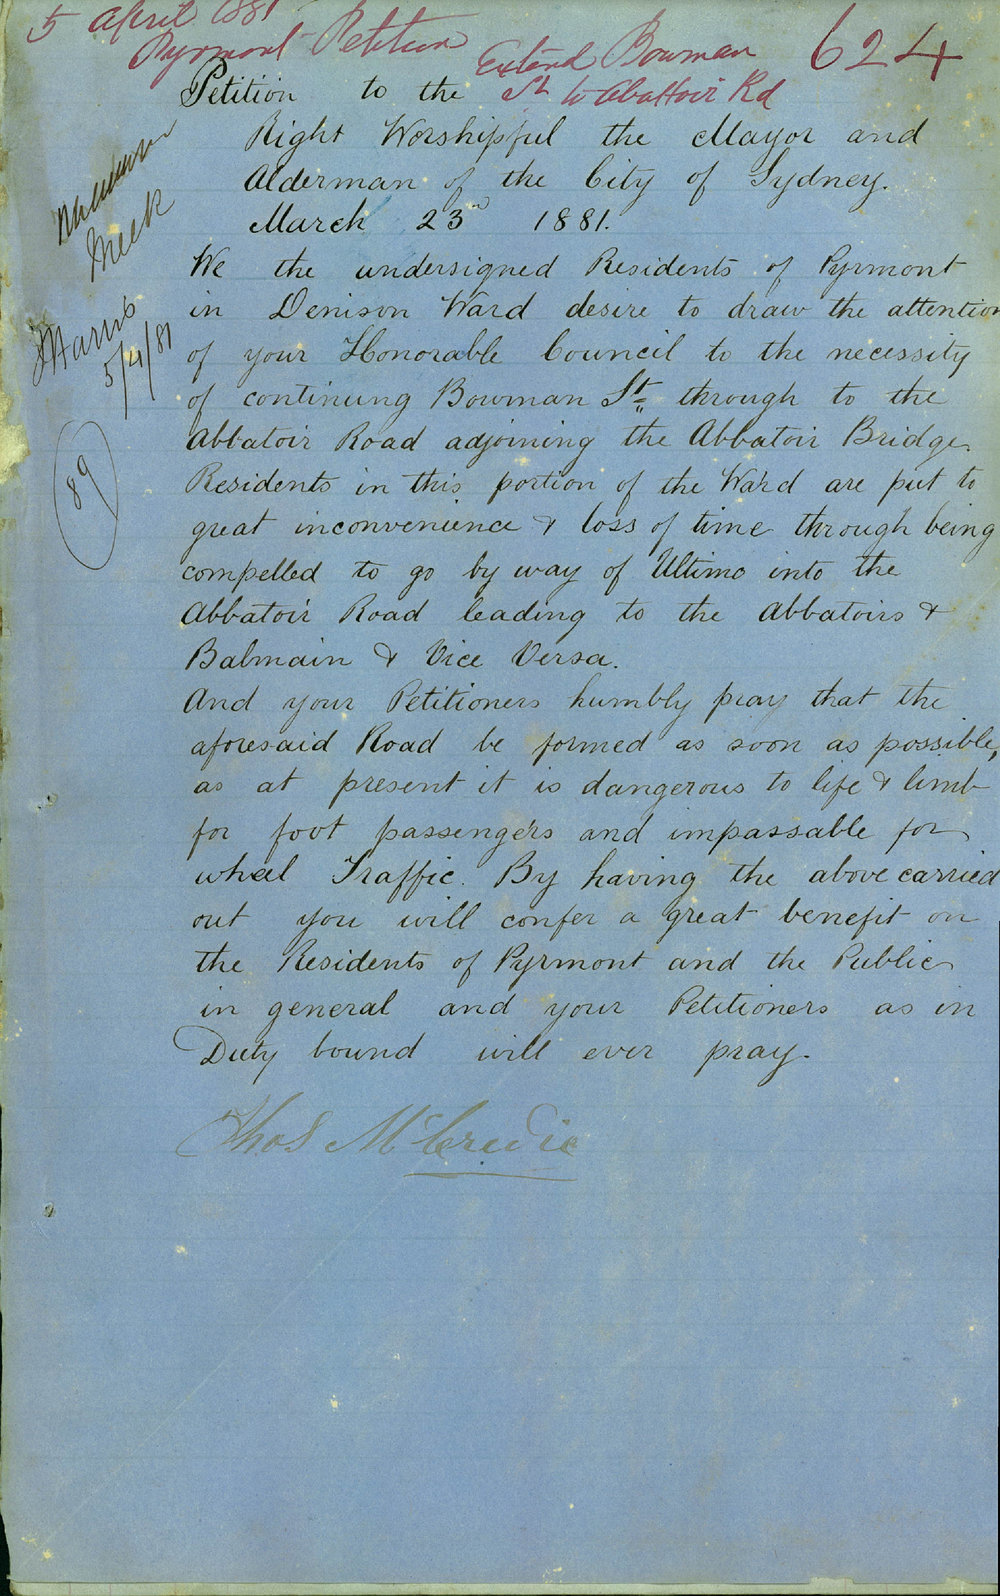 5 April 1881
Pyrmont Petition Extend Bowman 624
St to Abattoir Rd
Petition to the
Right Worshipful the Mayor and
Alderman of the City of Sydney.
March 23d 1881.
Meeks
J Harris
5/4/81
89
We the undersigned Residents of Pyrmont
in Denison Ward desire to draw the attention
of your Honorable Council to the necessity
of continuing Bowman St through to the
Abbatoir Road adjoining the Abbatoir Bridge.
Residents in this portion of the Ward are put to
great inconvenience & loss of time through being
compelled to go by way of Ultimo into the
Abbatoir Road leading to the Abbatoirs &
Balmain & Vice Versa.
And your Petitioners humbly pray that the
aforesaid Road be formed as soon as possible,
as at present it is dangerous to life & limb
for foot passengers and impassable for
wheel Traffic. By having the above carried
out you will confer a great benefit on
the Residents of Pyrmont and the Public
in general and your Petitioners as in
Duty bound will ever pray.
Thos McCredie